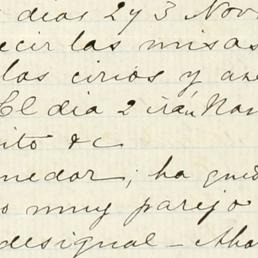 dias 2 y 3 Nov
decir las misas
los cirios y
El dia 2 irán
ito &c
nedor; ha qued
o muy parejo
desigual - Aho